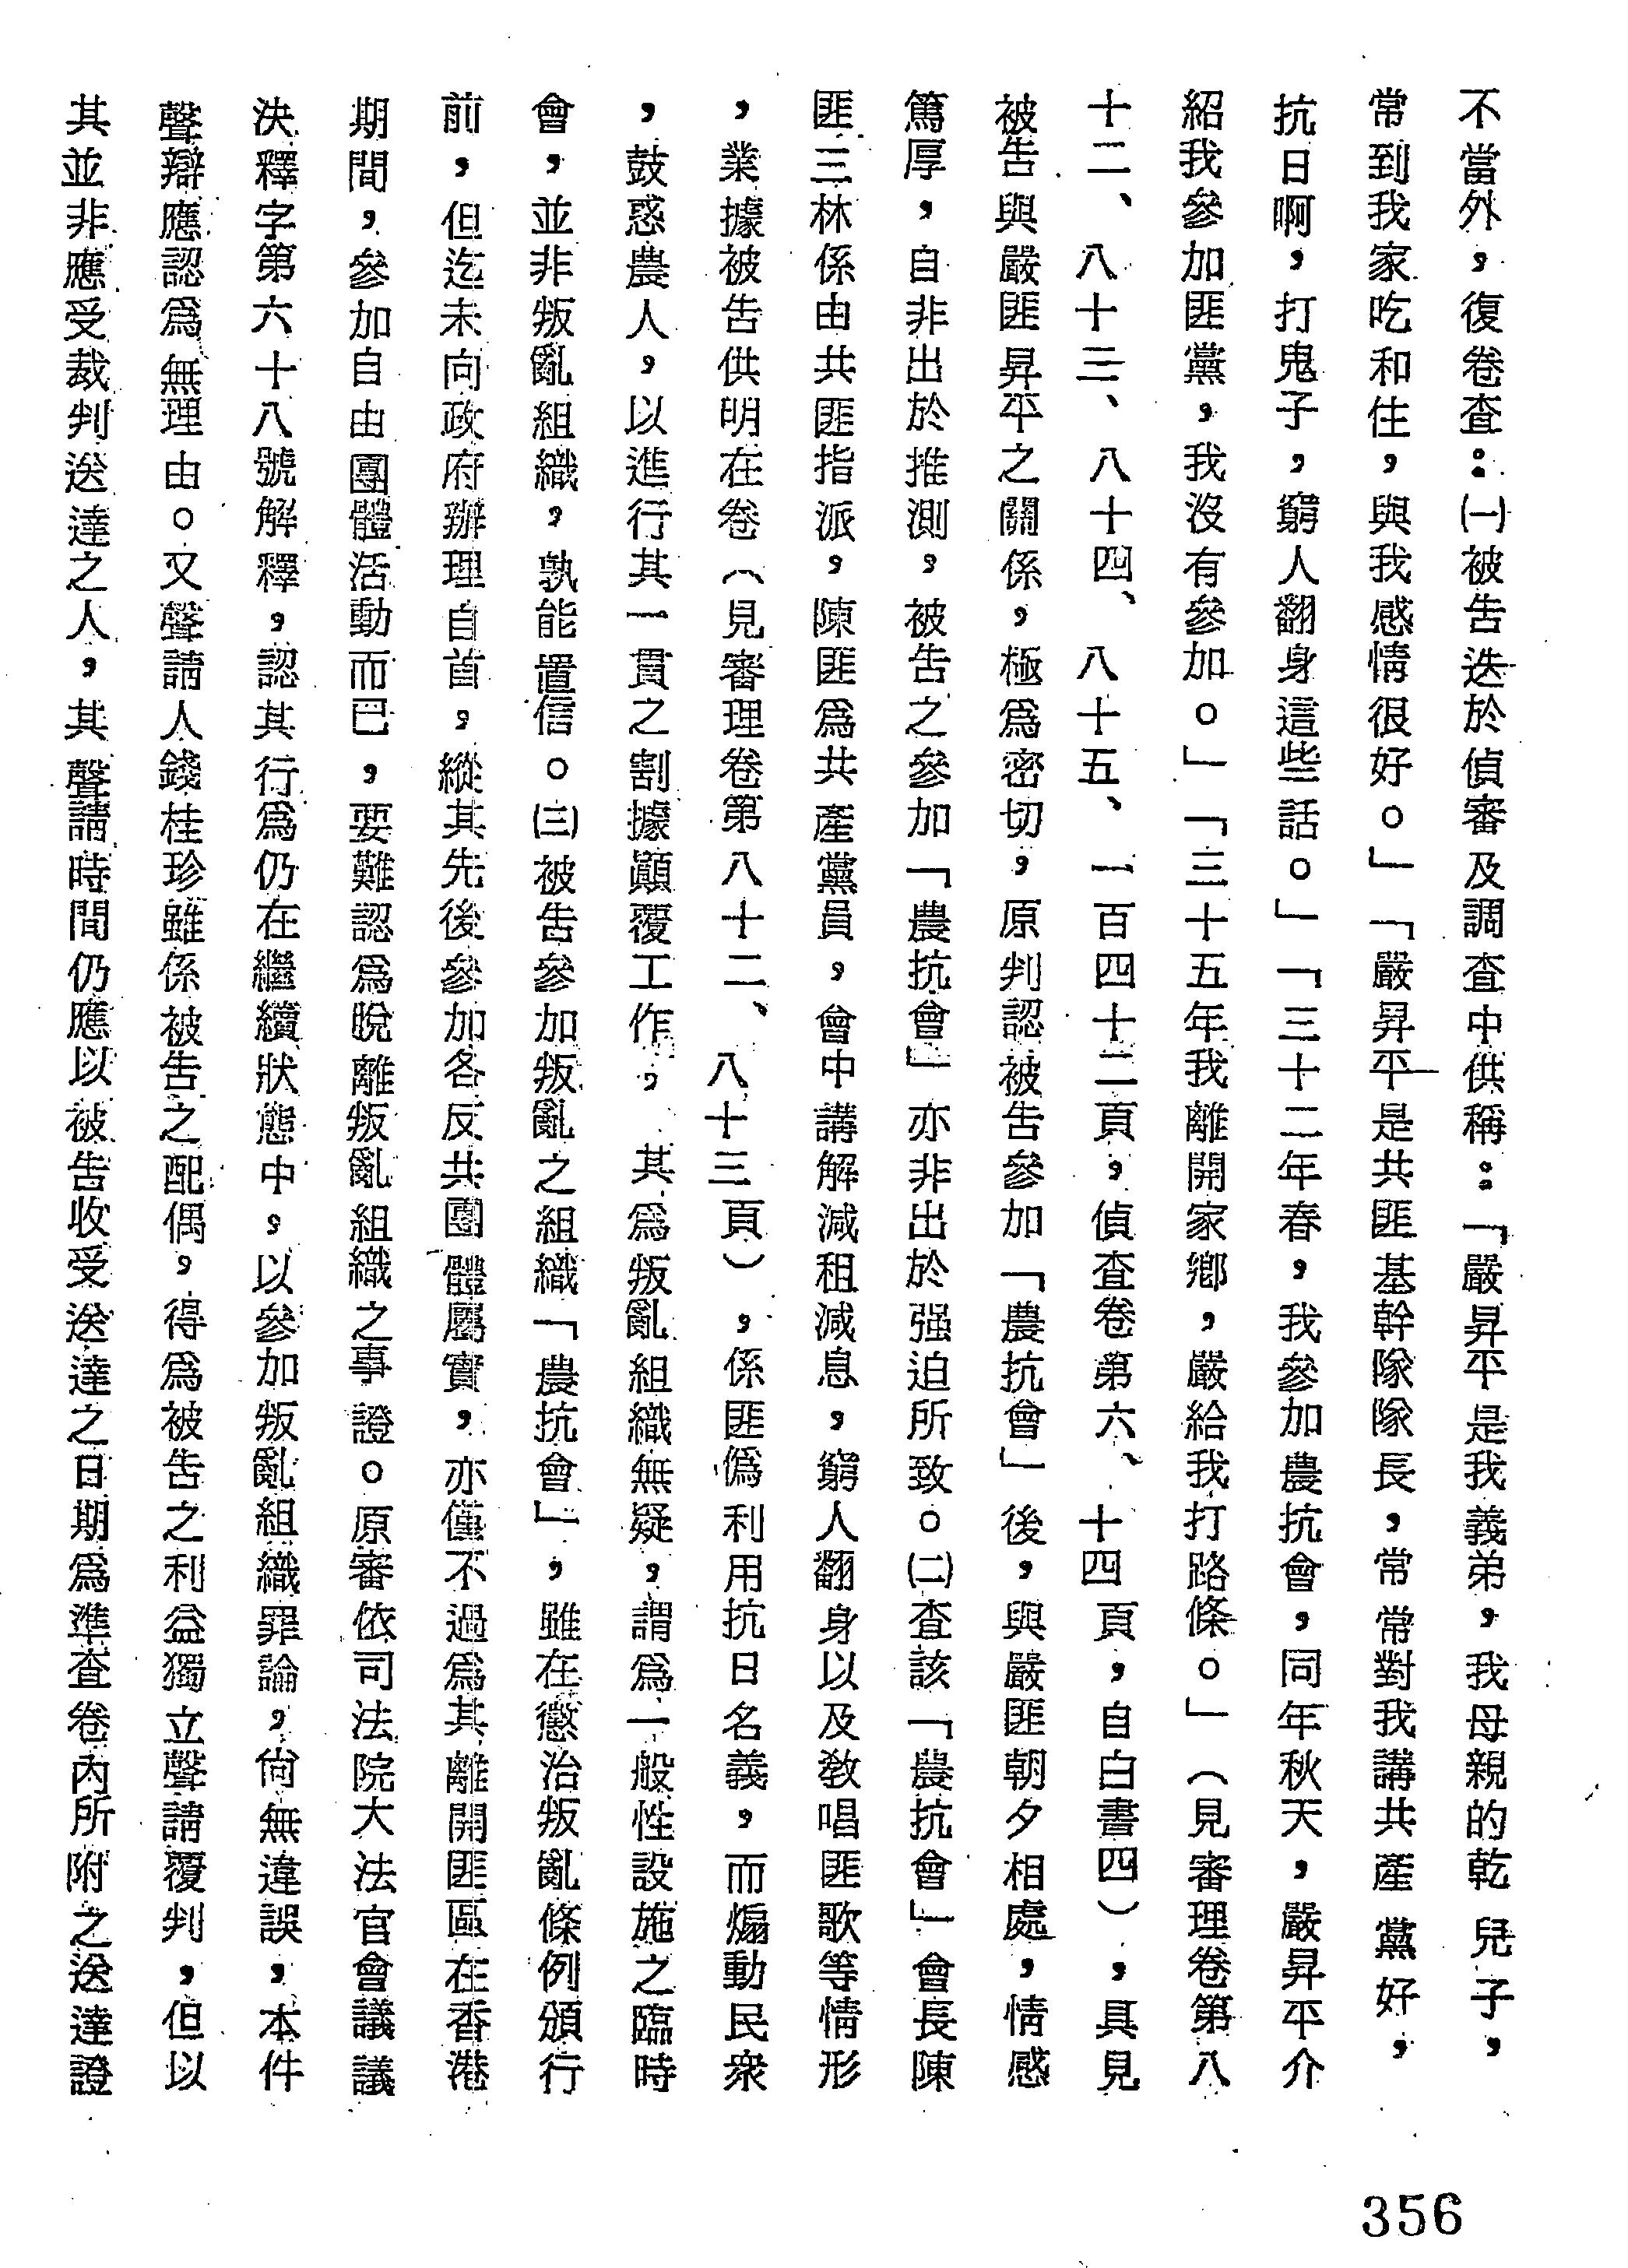 不當外，復卷查：㈠被告迭於偵審及調查中供稱：「嚴昇平是我義弟，我母親的乾兒子，
常到我家吃和住，與我感情很好。」「嚴昇平是共匪基幹隊隊長，常常對我講共產黨好，
抗日啊，打鬼子，窮人翻身這些話。」「三十二年春，我參加農抗會，同年秋天，嚴昇平介
紹我參加匪黨，我沒有參加。」「三十五年我離開家鄉，嚴給我打路條。」（見審理卷第八
十二、八十三、八十四、八十五、一百四十二頁，偵查卷第六、十四頁，自白書四），具見
被告與嚴匪昇平之關係，極為密切，原判認被告參加「農抗會」後，與嚴匪朝夕相處，情感
篤厚，自非出於推測，被告之參加「農抗會」亦非出於强迫所致。㈡查該「農抗會」會長陳
匪三林係由共匪指派，陳匪爲共產黨員，會中講解減租減息，窮人翻身以及教唱匪歌等情形
，業據被告供明在卷（見審理卷第八十二、八十三頁），係匪僞利用抗日名義，而煽動民衆
，鼓惑農人，以進行其一貫之割據顚覆工作，其爲叛亂組織無疑，謂爲一般性設施之臨時
會，並非叛亂組織，孰能置信。㈢被告參加叛亂之組織「農抗會」，雖在懲治叛亂條例頒行
前，但迄未向政府辦理自首，縱其先後參加各反共團體屬實，亦僅不過爲其離開匪區在香港
期間，參加自由團體活動而已，要難認爲脫離叛亂組織之事證。原審依司法院大法官會議議
決釋字第六十八號解釋，認其行爲仍在繼續狀態中，以參加叛亂組織罪論，尙無違誤，本件
聲辯應認爲無理由。又聲請人錢桂珍雖係被告之配偶，得爲被告之利益獨立聲請覆判，但以
其並非應受裁判送達之人，其聲請時間仍應以被告收受送達之日期爲準查卷內所附之送達證
356